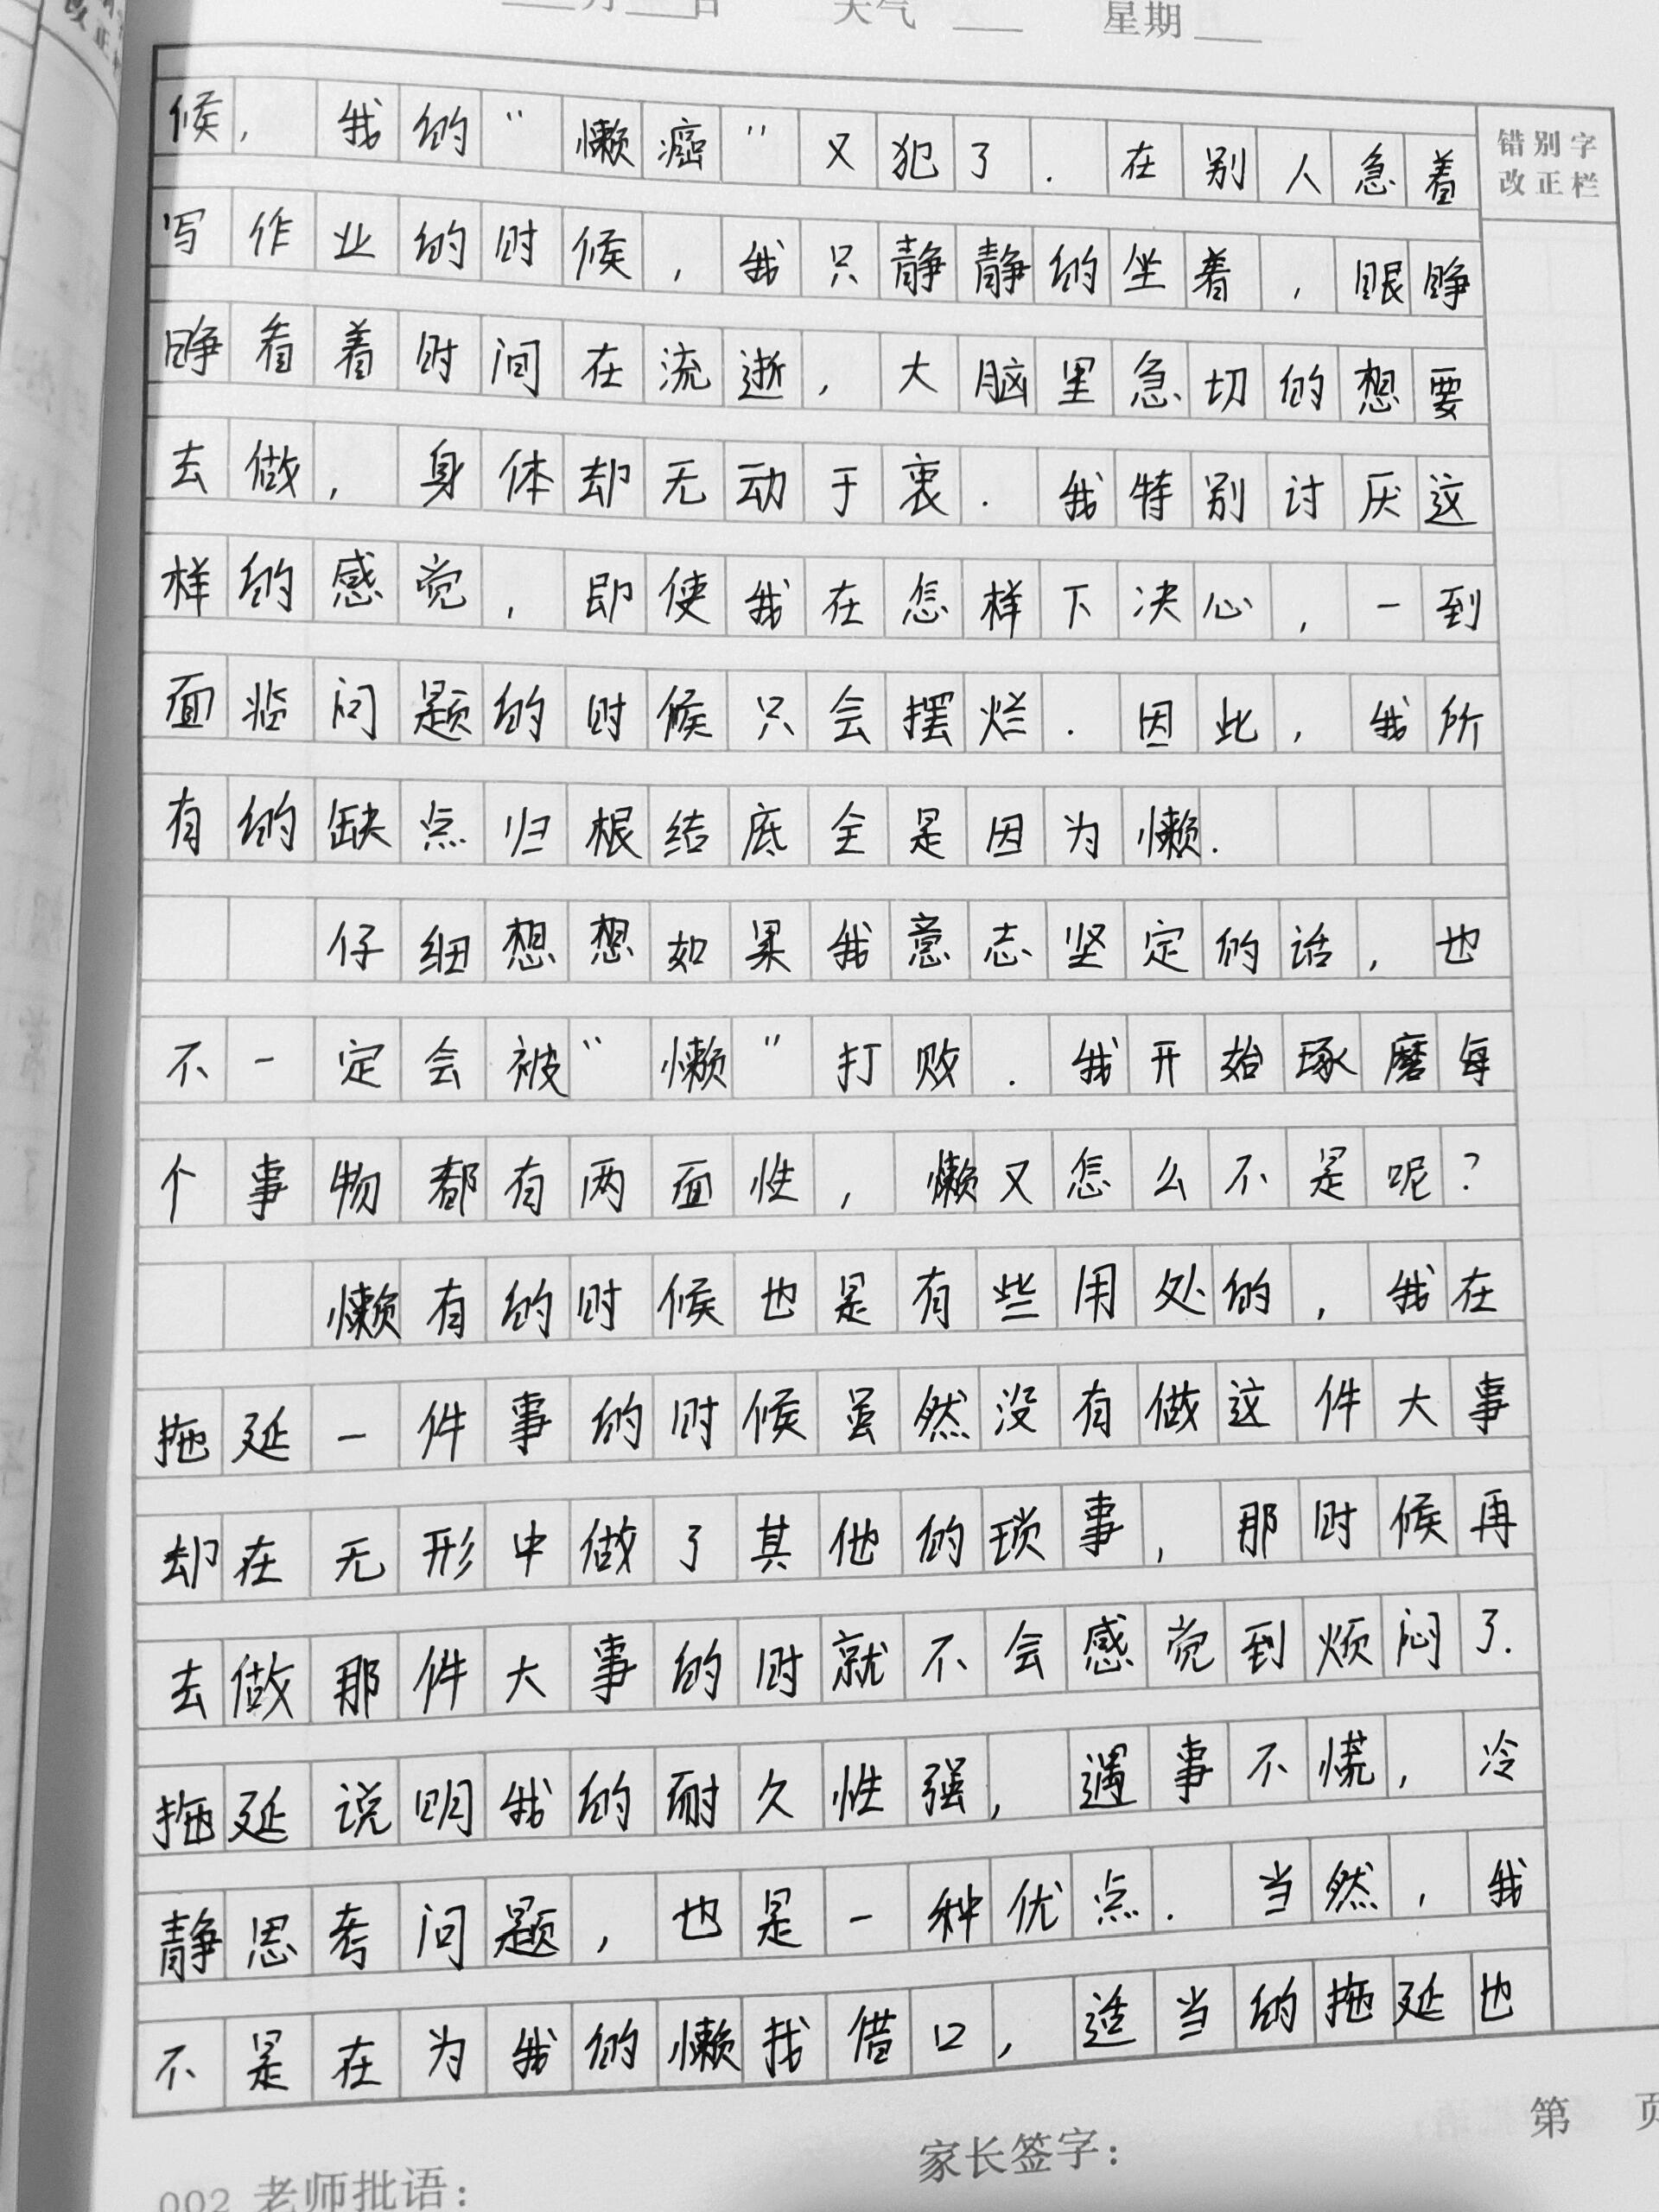 月 日 天气 星期
错别字
改正栏
候，我的“懒癌”又犯了．在别人急着
写作业的时候，我只静静的坐着，眼睁
睁看着时间在流逝，大脑里急切的想要
去做，身体却无动于衷．我特别讨厌这
样的感觉，即使我在怎样下决心，一到
面临问题的时候只会摆烂．因此，我所
有的缺点归根结底全是因为懒．
仔细想想如果我意志坚定的话，也
不一定会被“懒”打败．我开始琢磨每
个事物都有两面性，懒又怎么不是呢？
懒有的时候也是有些用处的，我在
拖延一件事的时候虽然没有做这件大事
却在无形中做了其他的琐事，那时候再
去做那件大事的时就不会感觉到烦闷了．
拖延说明我的耐久性强，遇事不慌，冷
静思考问题，也是一种优点．当然，我
不是在为我的懒找借口，适当的拖延也
第 页
家长签字：
002 老师批语：